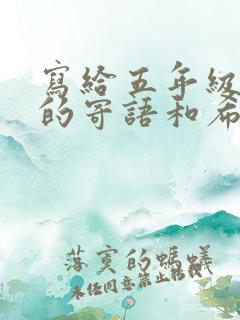 寫給五年級
的寄語和希
落寞的螞蟻
未经同意禁止转载